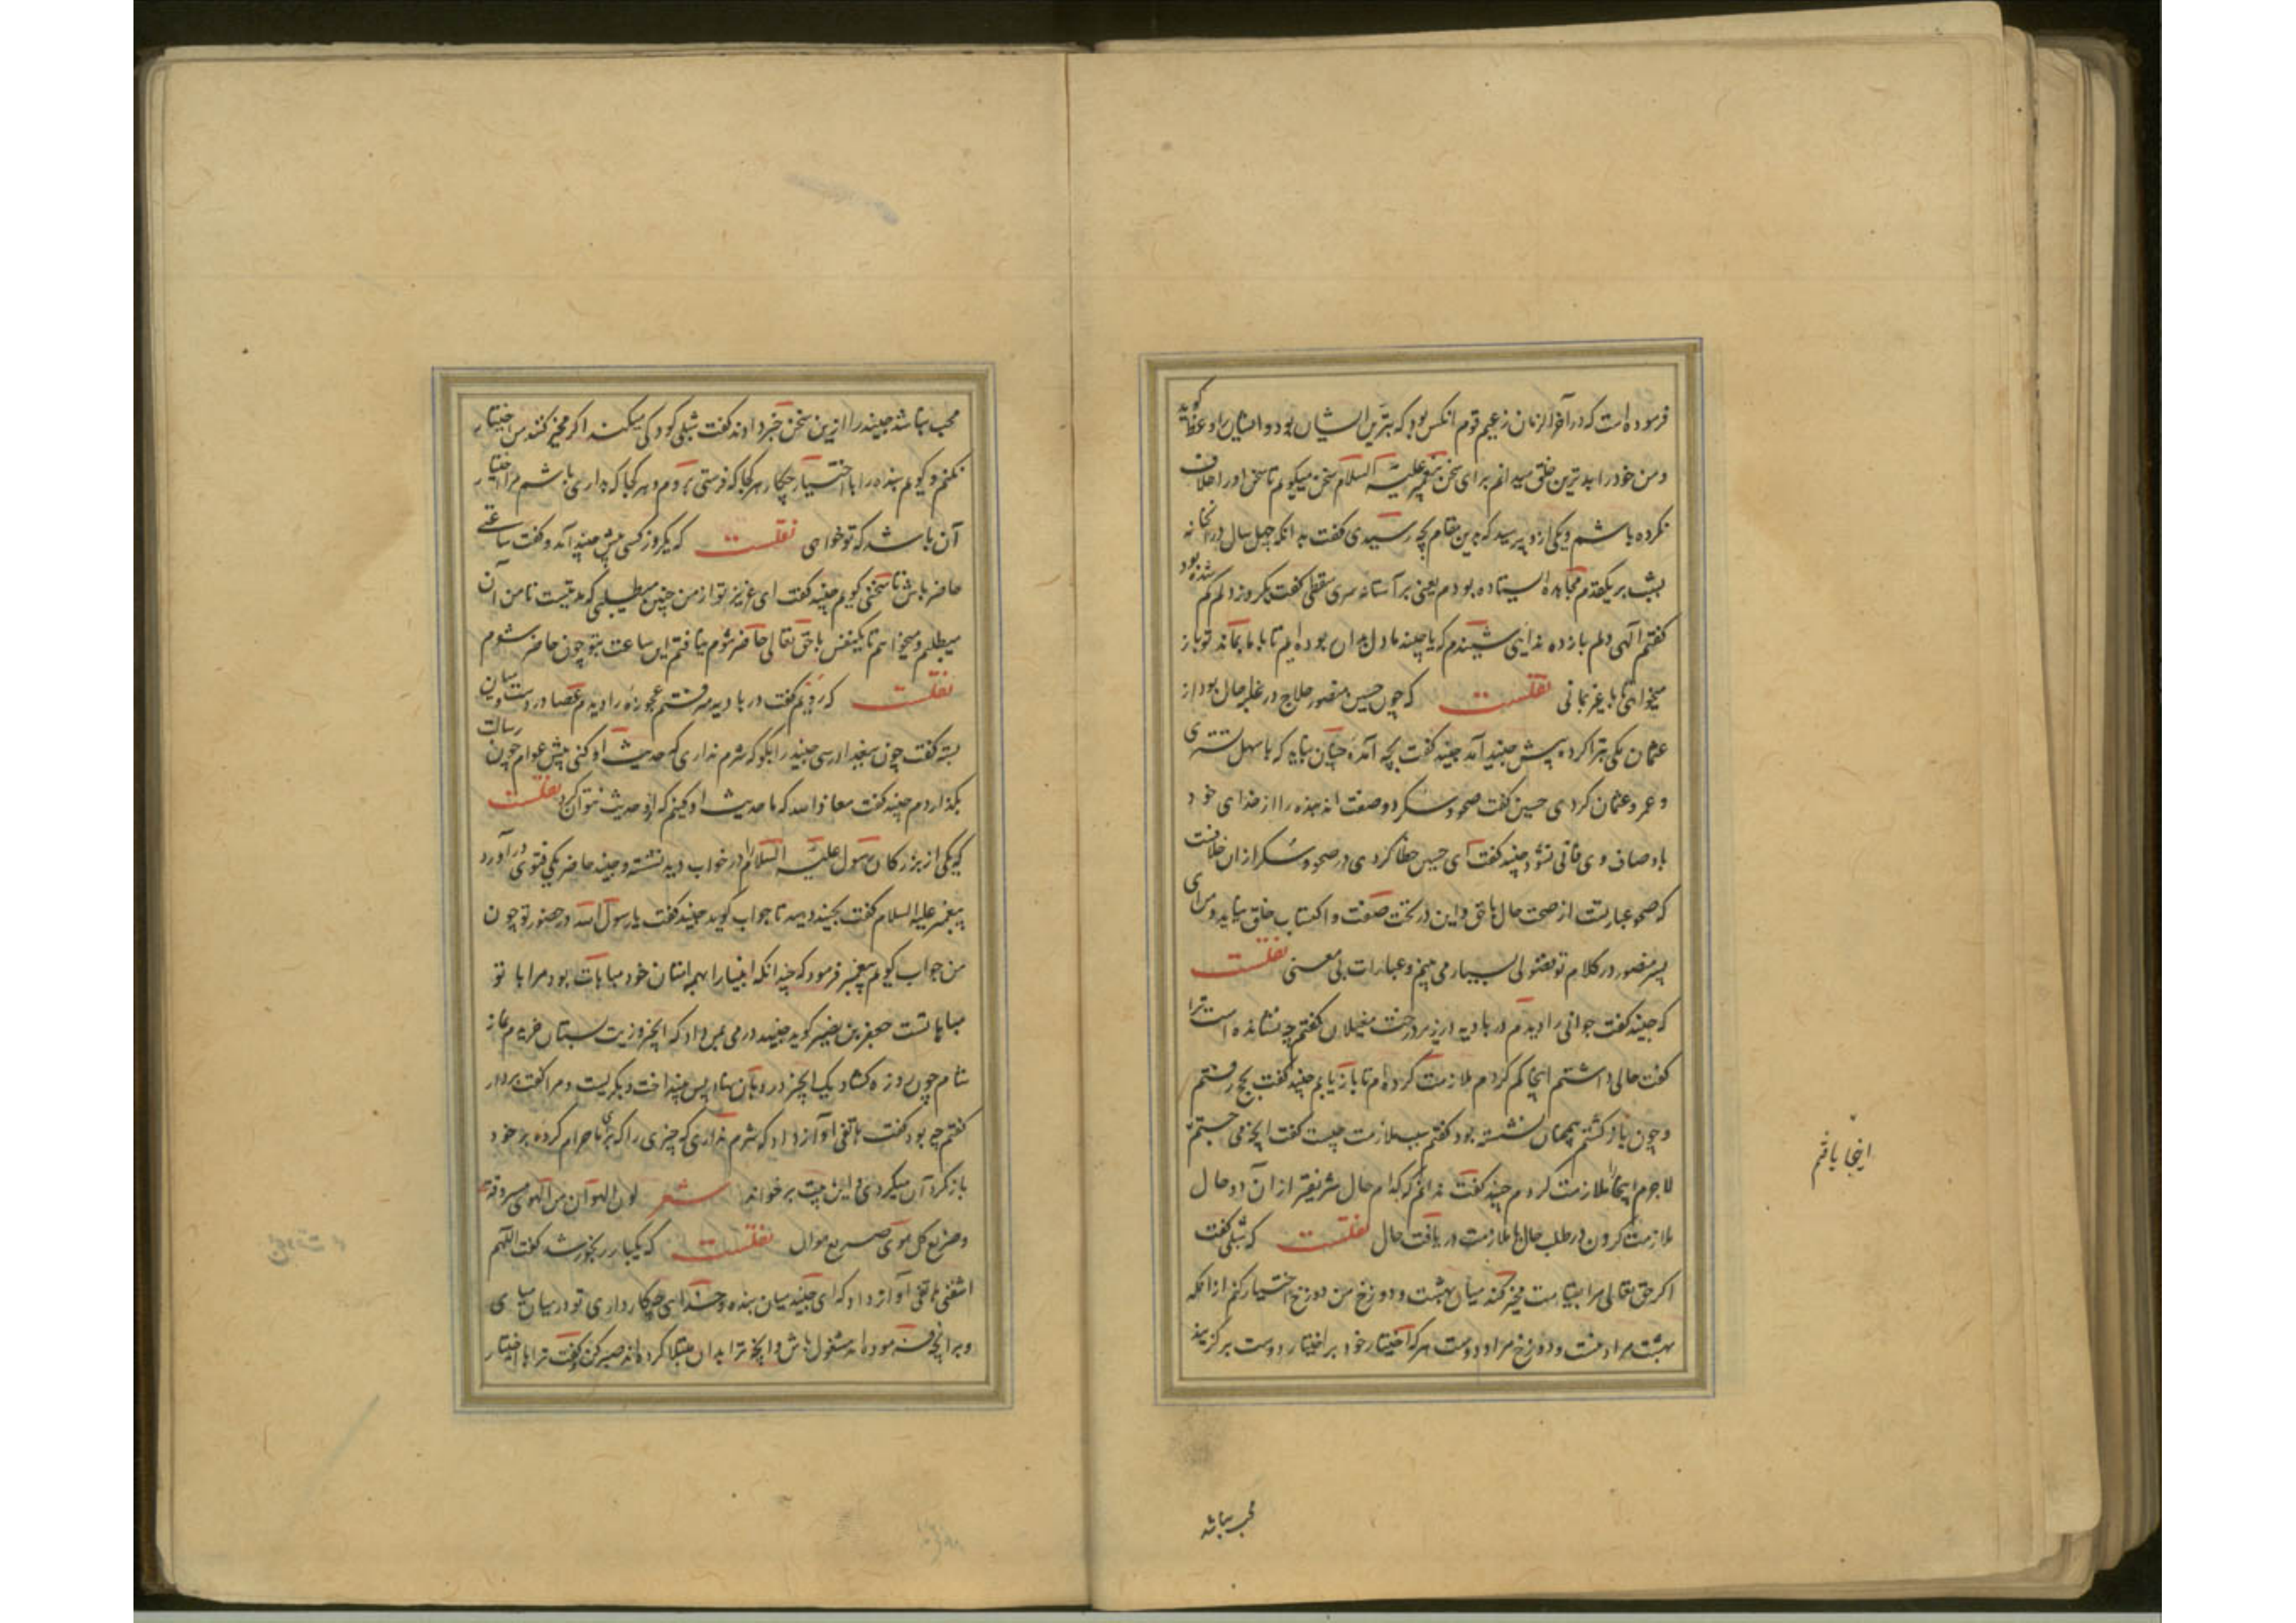 فرموده است که در آخر الزمان زعیم قوم آنکس بود که بترین ایشان بود و ایشانرا وعظ گوید
و من خود را بدترین خلق میدانم برای سخن پیغمبر علیه السلام سخن میگویم تا سخن او را خلاف
نکرده باشم و یکی ازو پرسید که بدین مقام بچه رسیدی گفت بدانکه چهل سال در آنخانه
بشب بر یکقدم مجاهده ایستاده بودم یعنی بر آستانه سری سقطی گفت یکروز دلم گم شده بود
گفتم الهی دلم بازده ندایی شنیدم که یا جنید ما دل بدان بوده ایم تا با ما بماند تو باز
میخواهی تا با غیر مانی نقلست که چون حسین منصور حلاج در غلبه حال بود از
عثمان مکی تبرا کرد پیش جنید آمد جنید گفت بچه آمده چنان نباید که با سهل تستری
و عمرو عثمان کردی حسین گفت صحو و سکر دو صفت اند بنده را از خدای خود
باوصاف وی فانی نشود جنید گفت ای حسین خطا کردی در صحو و سکر از ان خلاف نیست
که صحو عبارتست از صحت حال با حق و این در تحت صفت و اکتساب خلق نیاید و من ای
پسر منصور در کلام تو فضولی بسیار می بینم و عبارات بی معنی نقلست
که جنید گفت جوانی را دیدم در بادیه در زیر درخت مغیلان گفتم چه نشانده است ترا
گفت حالی داشتم اینجا گم کردم ملازمت کرده ام تا باز یابم جنید گفت بحج رفتم
و چون باز گشتم همچنان نشسته بود گفتم سبب ملازمت چیست گفت آنچه می جستم
اینجا یافتم
لاجرم اینجا را ملازمت کردم جنید گفت ندانم که کدام حال شریفتر از آن دو حال
ملازمت کردن در طلب حال یا ملازمت در یافت حال نقلست که شبلی گفت
اگر حق تعالی مرا بقیامت مخیر کند میان بهشت و دوزخ من دوزخ اختیار کنم از آنکه
بهشت مراد منست و دوزخ مراد دوست هر که اختیار خود بر اختیار دوست برگزیند
محب نباشد
محب نباشد جنید را ازین سخن خبر دادند گفت شبلی کودکی میکند اگر مخیر کنند من اختیار
نکنم و گویم بنده را با اختیار چکار هر کجا که فرستی بروم و هر کجا که بداری باشم مرا اختیار
آن باشد که تو خواهی نقلست که یکروز کسی پیش جنید آمد و گفت ساعتی
حاضر باش تا سخنی گویم جنید گفت ای عزیز تو از من چیزی میطلبی که مدتیست تا من آن
میطلبم و میخواهم تا یکنفس با حق تعالی حاضر شوم نیافتم این ساعت بتو چون حاضر شوم
نقلست که رویم گفت در بادیه میرفتم عجوزه را دیدم عصا در دست و میان
بسته گفت چون ببغداد رسی جنید را بگو که شرم نداری که حدیث او کنی پیش عوام چون رسالت
بگذاردم جنید گفت معاذ الله که ما حدیث او کنیم که ازو حدیث نتوان کرد نقلست
که یکی از بزرگان رسول علیه السلام را در خواب دید نشسته و جنید حاضر یکی فتوی در آورد
پیغمبر علیه السلام گفت بجنید دهید تا جواب گوید جنید گفت یا رسول الله در حضور تو چون
من جواب گویم پیغمبر فرمود که چندانکه انبیا را بهمه امتان خود مباهات بود مرا با تو
مباهاتست جعفر بن نصیر گوید جنید درمی بمن داد که انجیر وزیری بستان خریدم نماز
شام چون روزه گشاد یک انجیر در دهان نهاد پس بینداخت و بگریست و مرا گفت بردار
گفتم چه بود گفت هاتفی آواز داد که شرم نداری که چیزی را که برای ما حرام کرده بر خود
باز گرد آن میگردی و این بیت برخواند شعر نون الهوان من الهوی مسروقة
و صریع کل هوی صریع هوان نقلست که یکبار رنجور شد گفت اللهم
اشفنی هاتفی آواز داد که ای جنید میان بنده و خدای چکار داری تو در میان میای
و بر آنچه فرموده اند مشغول باش و بر آنچه ترا بدان مبتلا کرده اند صبر کن گفت ترا با اختیار